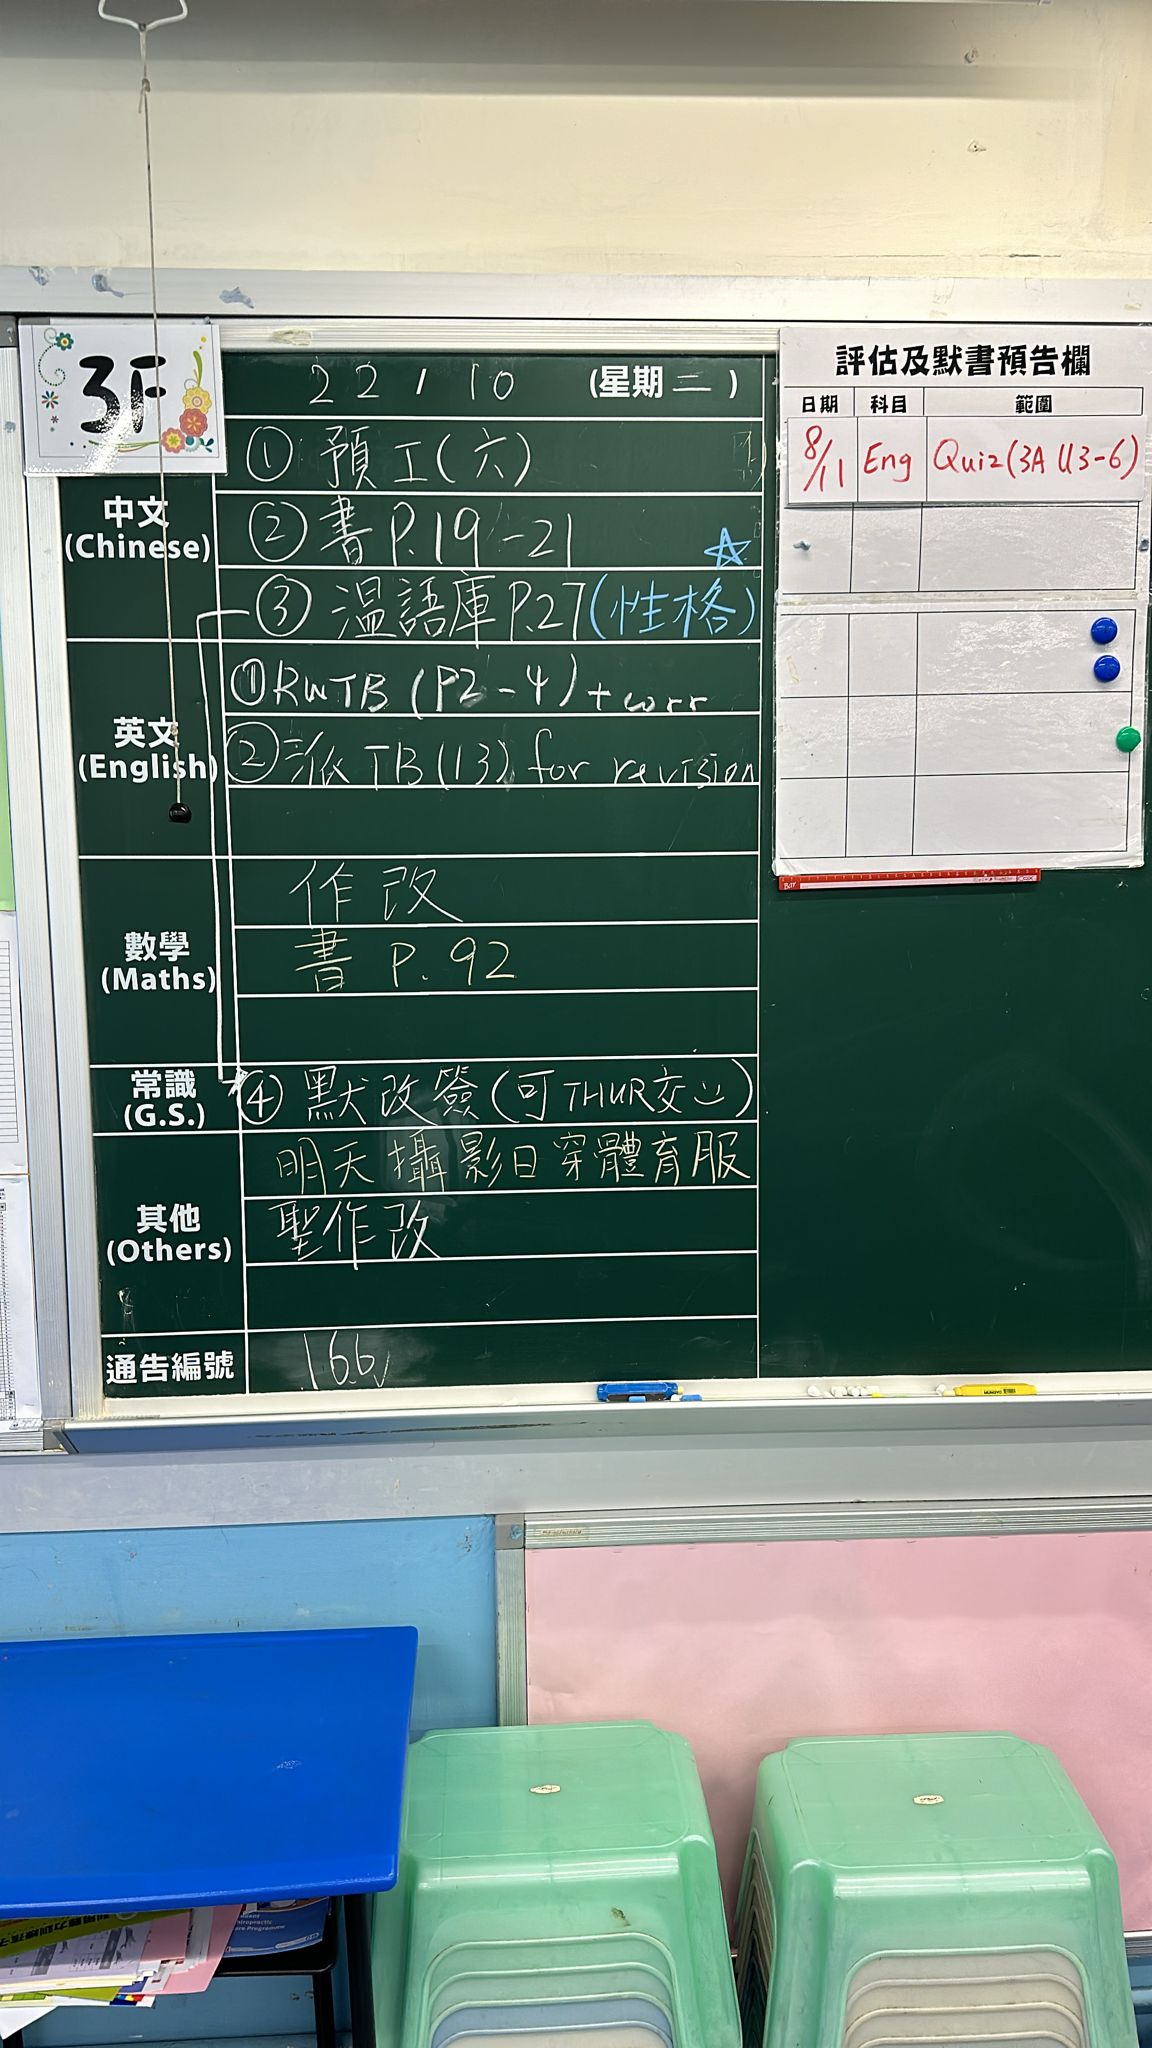 3F
22 / 10 (星期二)
中文
(Chinese)
① 預工(六)
② 書P.19-21
③ 溫語庫P.27(性格)
英文
(English)
① RWTB (P2-4) + corr
② 派TB(13) for revision
數學
(Maths)
作改
書 P.92
常識
(G.S.)
④ 默改簽(可THUR交)
其他
(Others)
明天攝影日穿體育服
聖作改
通告編號
166
評估及默書預告欄
日期 科目 範圍
8/11 Eng Quiz(3A U3-6)